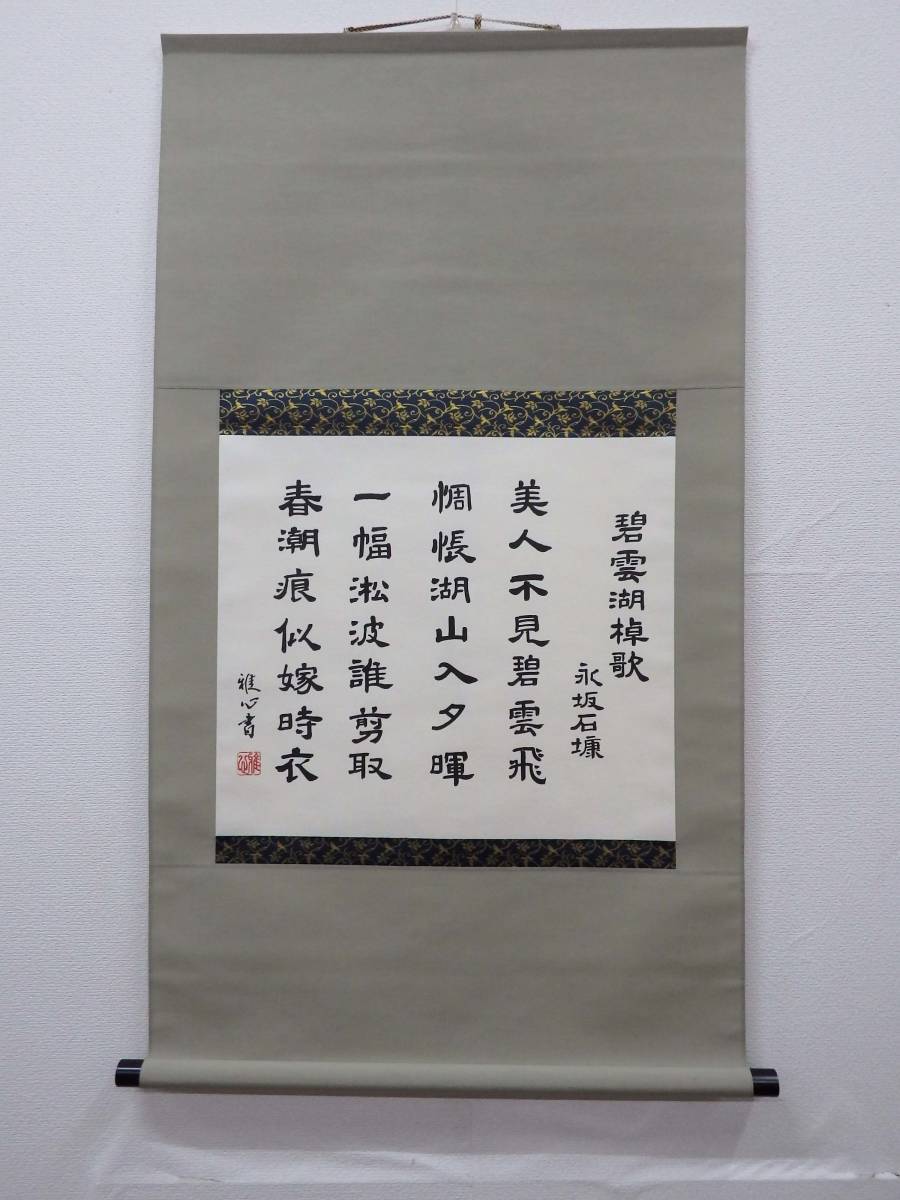 碧雲湖棹歌
永坂石壔
美人不見碧雲飛
惆悵湖山入夕暉
一幅淞波誰剪取
春潮痕似嫁時衣
雅心書